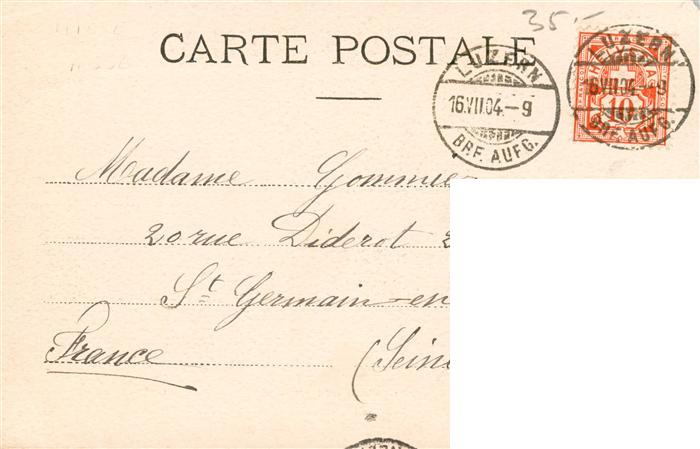 35.-
CARTE POSTALE
LUZERN
16.VII.04.-9
BRF. AUFG.
HELVETIA
10
LUZERN
16.VII.04.-9
BRF. AUFG.
Madame
20 rue Diderot 2
St Germain-en
France (Seine